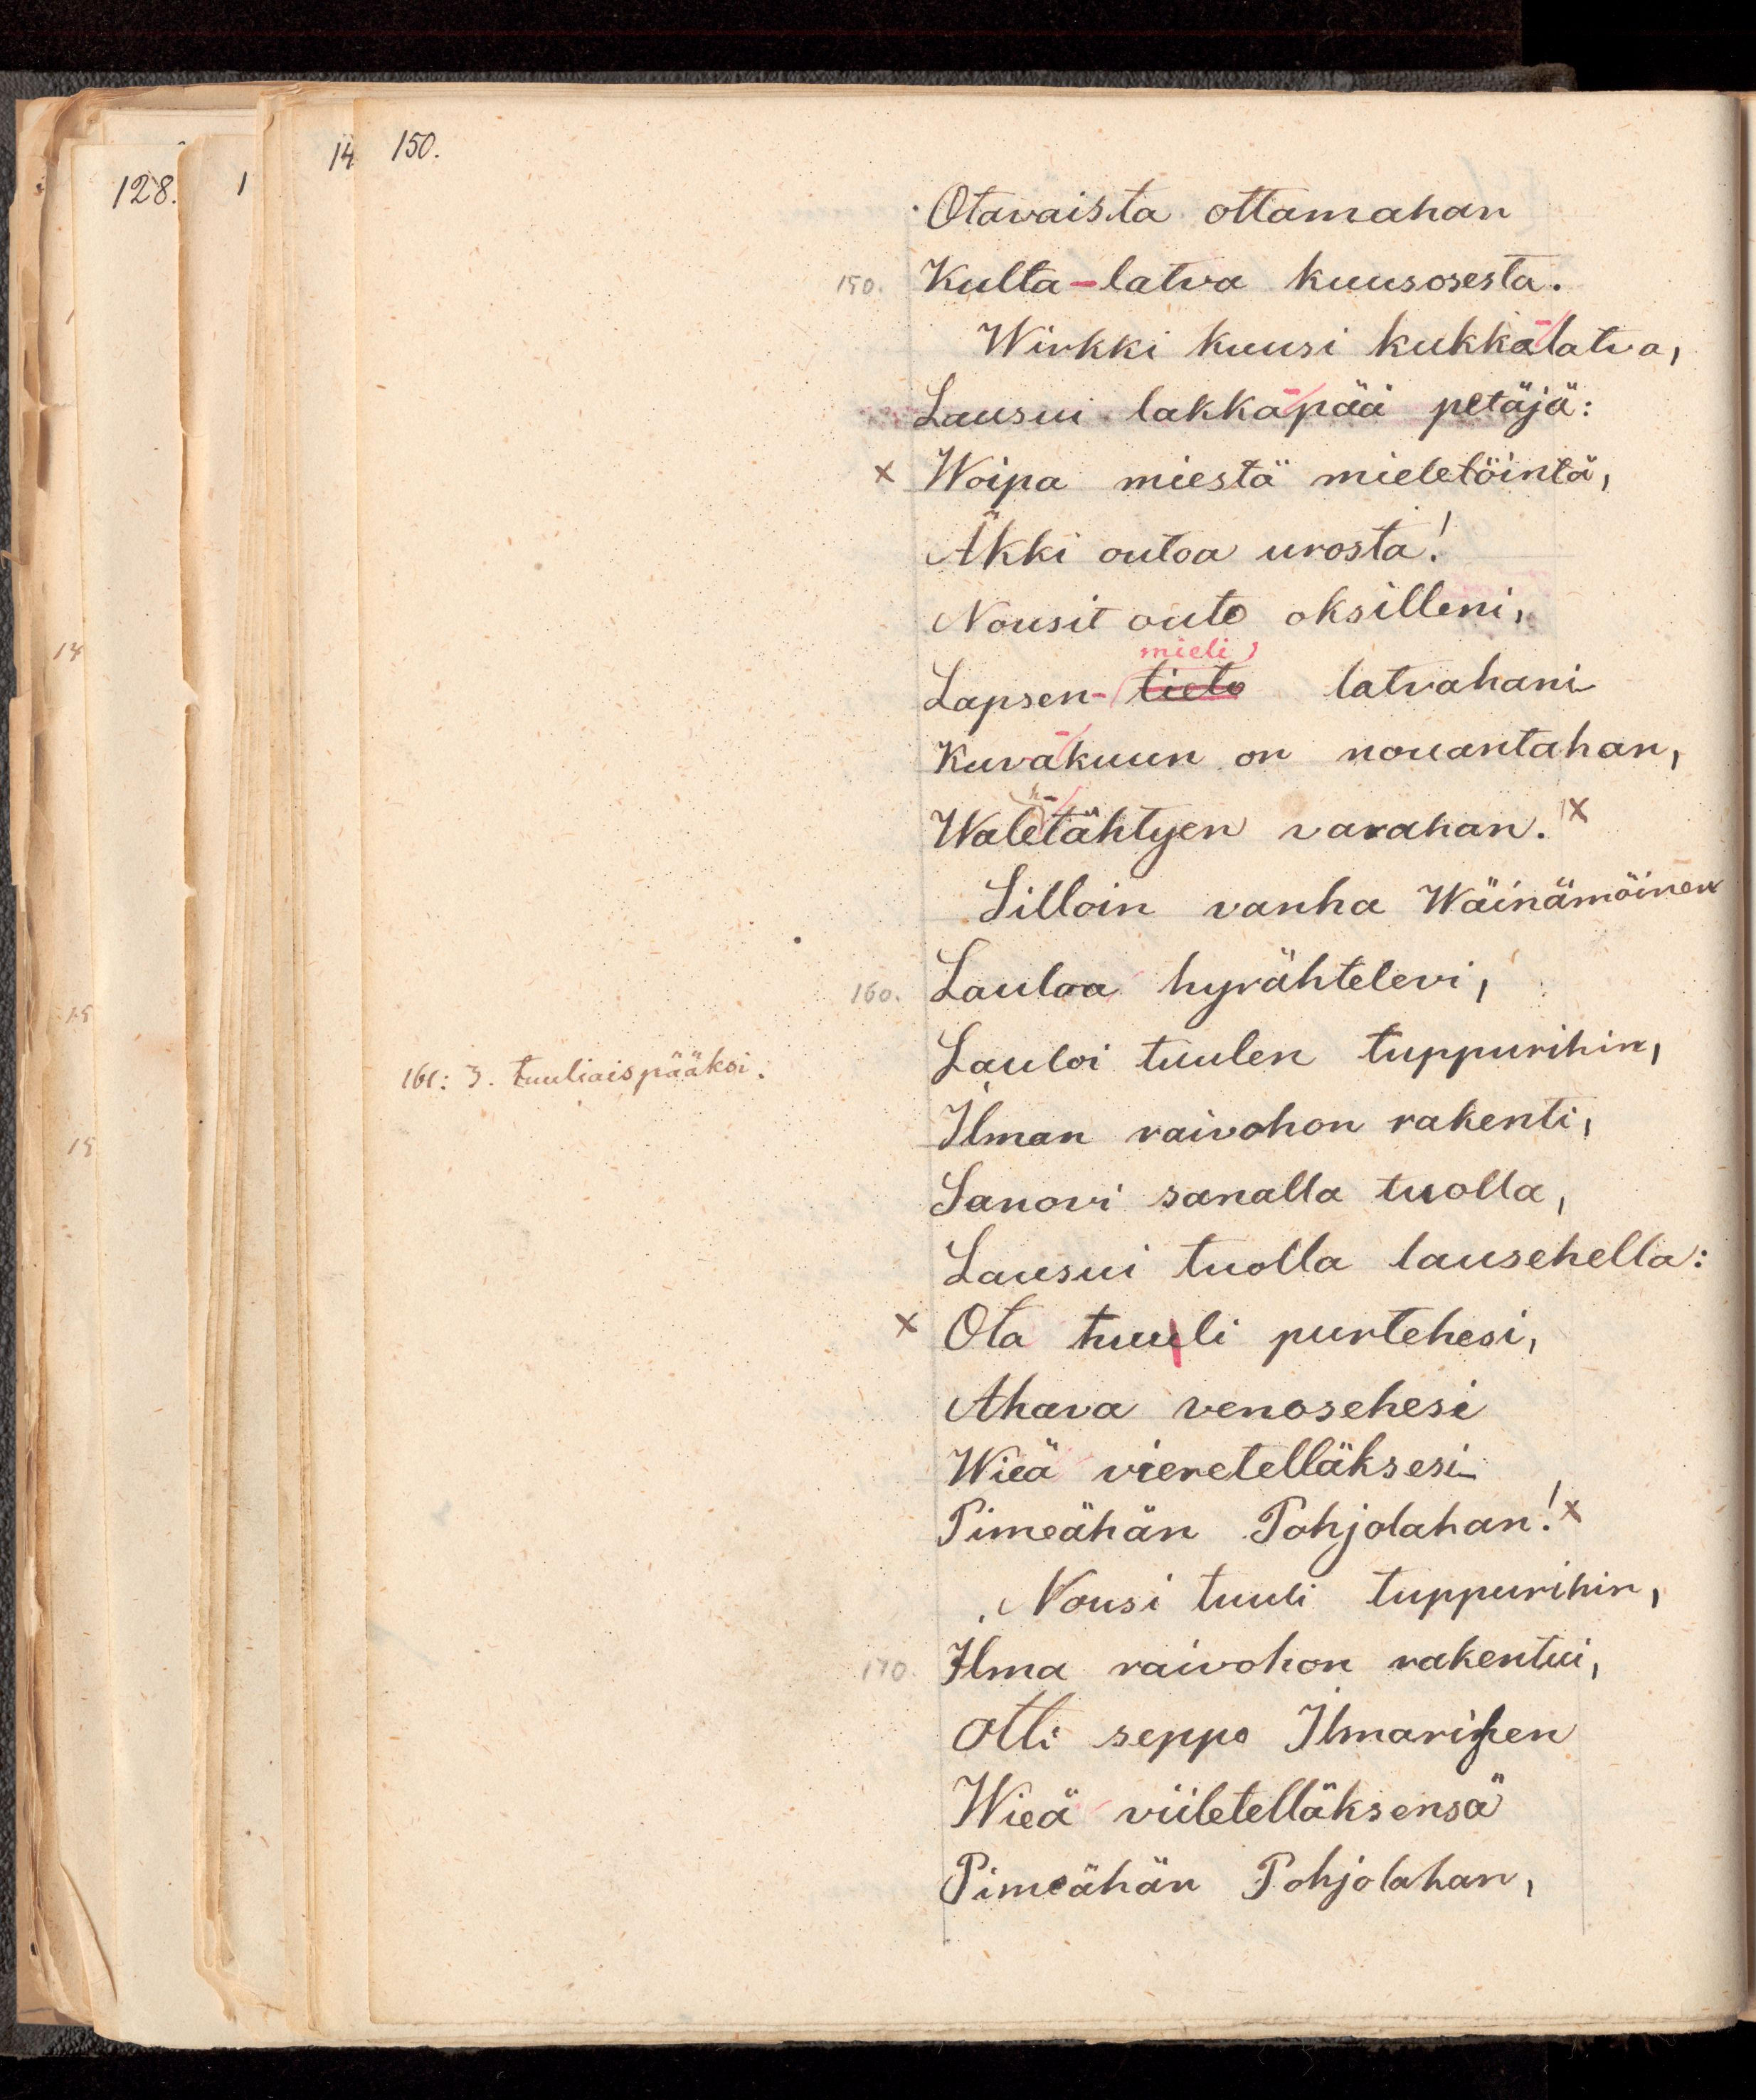 150.
14
128.
1
Otavaista ottamahan
150. Kulta-latva kuusosesta.
Wirkki kuusi kukka-latva,
Lausui lakka-pää petäjä:
x Woipa miestä mieletöintä,
Äkki outoa urosta!
Nousit outo oksilleni,
mieli
Lapsen-tieto latvahani
Kuva-kuun on nouantahan,
Waletähtyen varahan. x
Silloin vanha Wäinämöinen
160. Lauloa hyrähtelevi,
Lauloi tuulen tuppurihin,
161: 3. tuuliaispääksi.
Ilman raivohon rakenti,
Sanovi sanalla tuolla,
Lausui tuolla lausehella:
x Ota tuuli purtehesi,
Ahava venosehesi
Wieä vieretelläksesi
Pimeähän Pohjolahan! x
Nousi tuuli tuppurihin,
170. Ilma raivohon rakentui,
Otti seppo Ilmarisen
Wieä viiletelläksensä
Pimeähän Pohjolahan,
14
15
15